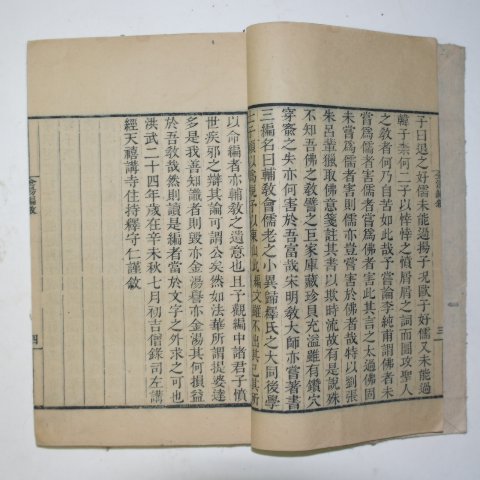 子曰退之好儒未能過揚子況歐子好儒又未能過
韓子柰何二子以悻悻之憤屑屑之詞而固攻聖人
之教者何乃自苦如此哉予嘗論李純甫謂佛者未
嘗爲儒者害儒者嘗爲佛者害此其言之太過佛固
未嘗爲儒者害則儒亦豈嘗害於佛者哉特以劉張
朱呂輩獵取佛意箋註其書以欺時流故有是說殊
不知吾佛之教譬之巨家庫藏珍貝充溢雖有鑽穴
穿窬之失亦何害於吾富哉宋明教大師亦嘗著書
三編名曰輔教會儒老之小異歸釋氏之大同後學
以命編者亦輔教之遺意也且予觀編中諸君子憤
世疾邪之辯其論可謂公矣然如法華所謂提婆達
多是我善知識者則毀亦金湯譽亦金湯其何損益
於吾教哉然則讀是編者當於文字之外求之可也
洪武二十四年歲在辛未秋七月初吉僧錄司左講
經天禧講寺住持釋守仁謹敘
三
四